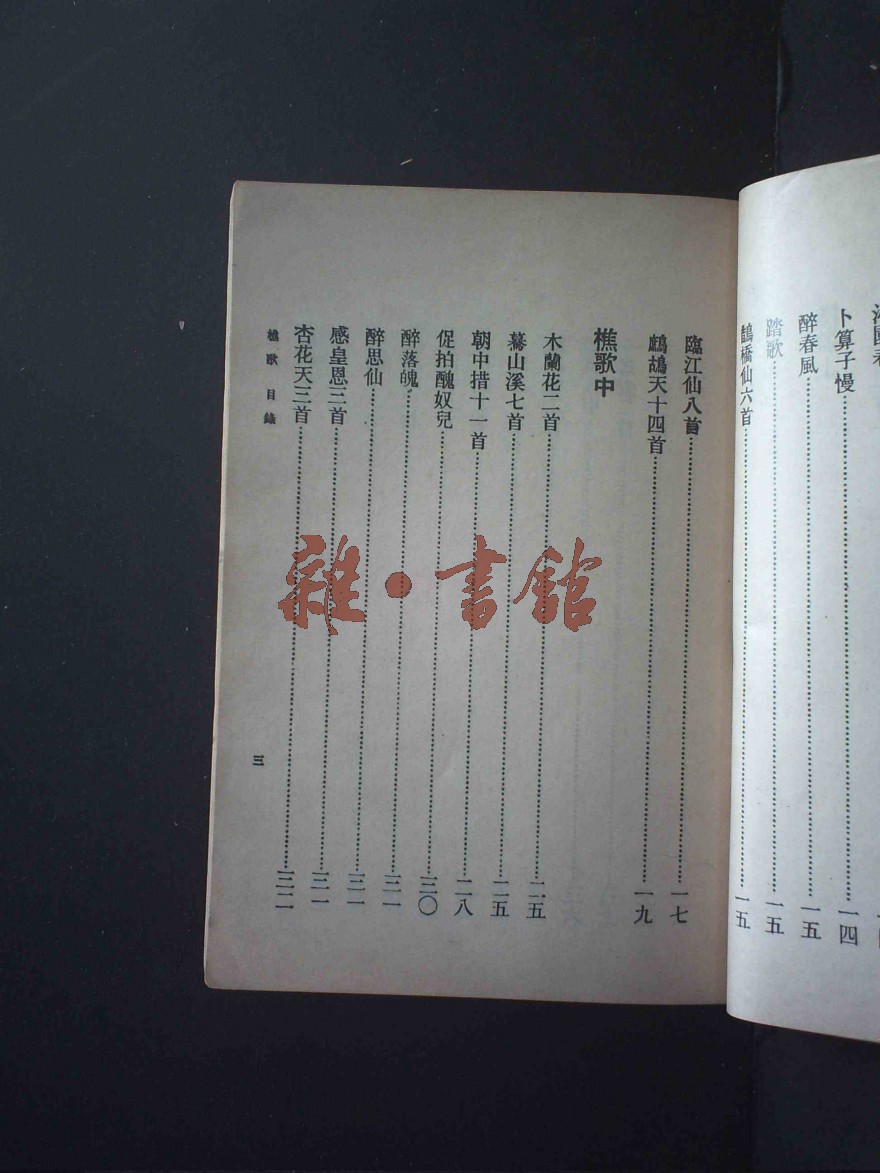 卜算子慢……一四
醉春風……一五
踏歌……一五
鵲橋仙六首……一五
臨江仙八首……一七
鷓鴣天十四首……一九
樵歌中
木蘭花二首……二五
驀山溪七首……二五
朝中措十一首……二八
促拍醜奴兒……三〇
醉落魄……三一
醉思仙……三一
感皇恩三首……三一
杏花天三首……三二
樵歌 目錄
三
雜·書館